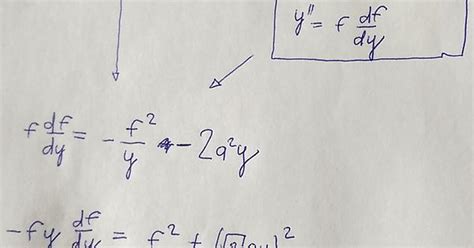 y'' = f df/dy
f df/dy = - f²/y - 2a²y
-fy df/dy = f² + (√2ay)²